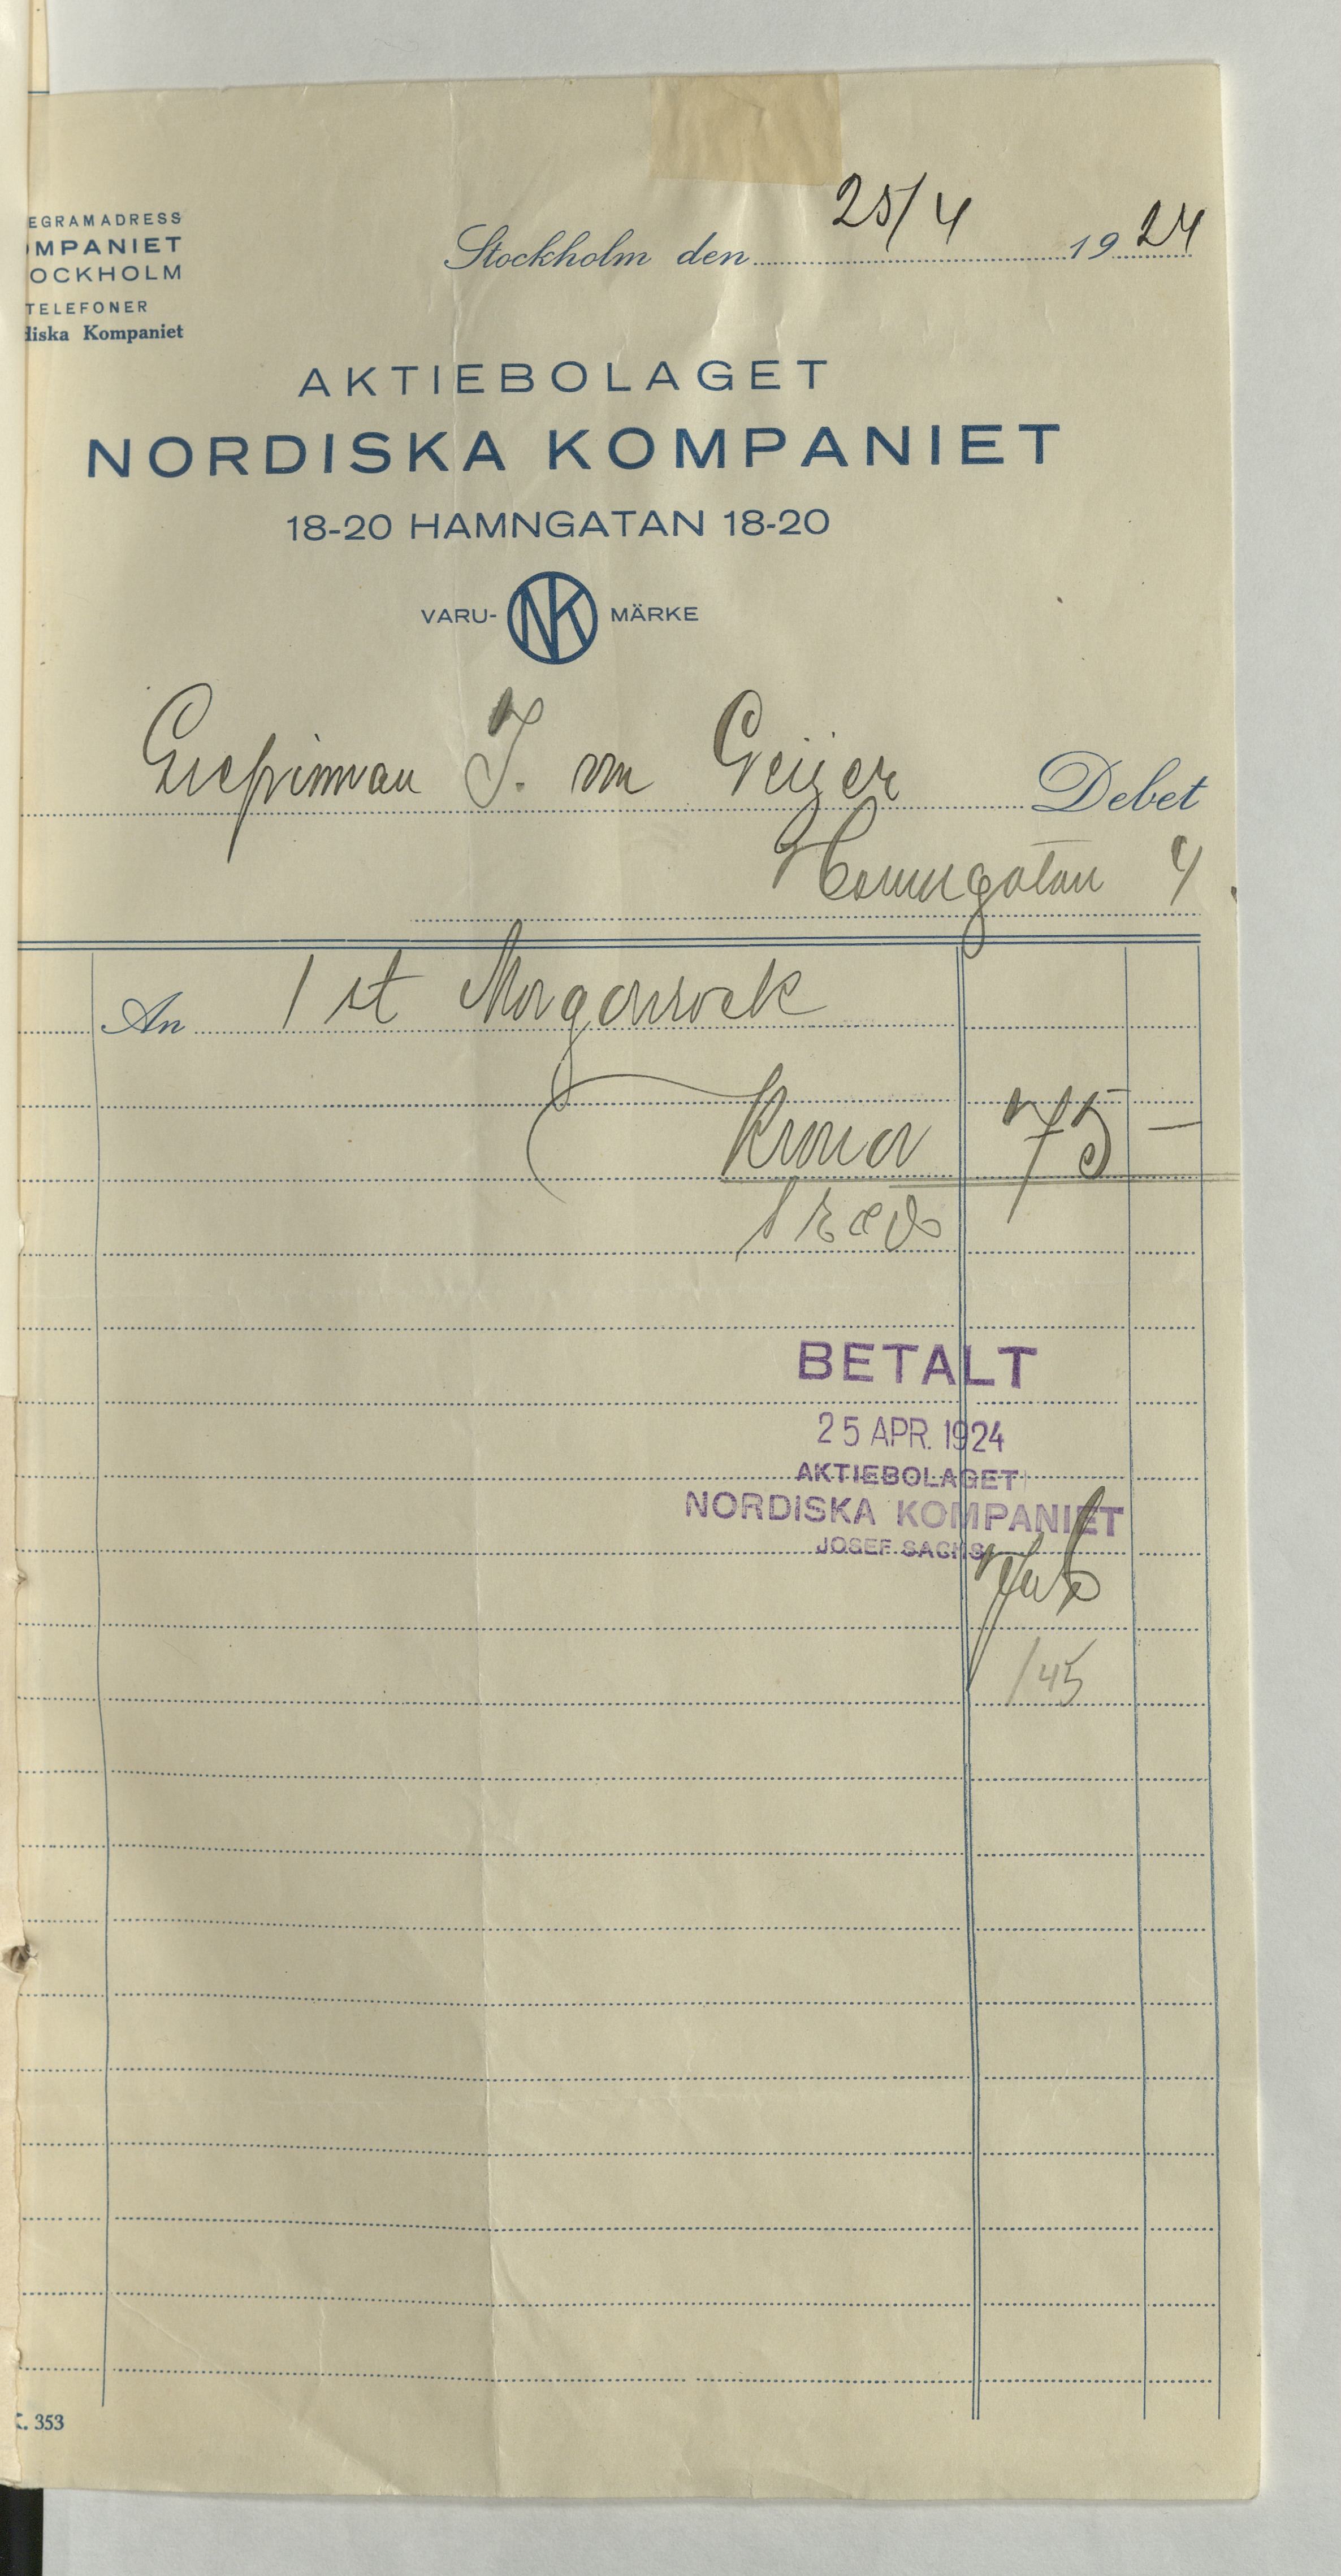 EGRAMADRESS
OMPANIET
OCKHOLM
TELEFONER
diska Kompaniet
Stockholm den 25/4 1924
AKTIEBOLAGET
NORDISKA KOMPANIET
18-20 HAMNGATAN 18-20
VARU- NK MÄRKE
Grefvinnan J. von Geijer Debet
Hamngatan 4
An 1 st Morgonrock
Kronor 75 —
BETALT
25 APR. 1924
AKTIEBOLAGET
NORDISKA KOMPANIET
JOSEF SACHS
145
K. 353